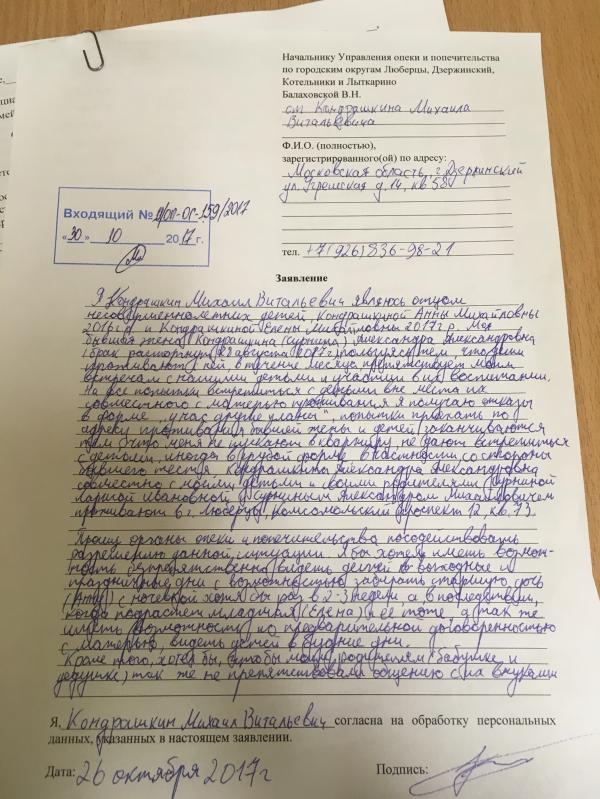 Начальнику Управления опеки и попечительства
по городским округам Люберцы, Дзержинский,
Котельники и Лыткарино
Балаховской В.Н.
от Кондрашкина Михаила
Витальевича
Ф.И.О. (полностью),
зарегистрированного(ой) по адресу:
Московская область, г. Дзержинский
ул. Угрешская д. 14, кв.
тел. +7(926)836-98-21
Входящий №
«30» 10 2017 г.
Заявление
Я Кондрашкин Михаил Витальевич являюсь отцом
несовершеннолетних детей Кондрашкиной Анны Михайловны
2016 г.р. и Кондрашкиной Елены Михайловны 2017 г.р. Моя
бывшая жена Кондрашкина Александра Александровна
(брак расторгнут августа 2017г) пользуясь тем, что они
проживают с ней в течение месяца препятствует моим
встречам с нашими детьми и участии в их воспитании.
На все попытки встретиться с детьми вне места их
совместного с матерью проживания я получаю отказы
в форме "у нас другие планы", попытки приехать по
адресу проживания бывшей жены и детей заканчиваются
тем что меня не пускают в квартиру, не дают встретиться
с детьми, иногда в грубой форме в частности со стороны
бывшего тестя. Кондрашкина Александра Александровна
совместно с моими детьми и своими родителями
Ларисой Ивановной и Александром Михайловичем
проживают в г. Люберцы, Комсомольский проспект 12, кв. 73.
Прошу органы опеки и попечительства посодействовать
разрешению данной ситуации. Я бы хотел иметь возмож-
ность беспрепятственно видеть детей в выходные и
праздничные дни с возможностью забирать старшую дочь
(Анну) с ночевкой хотя бы раз в 2-3 недели а в последствии,
когда подрастет младшая (Елена) и её тоже, а так же
иметь возможность по предварительной договоренностью
с матерью, видеть детей в будние дни.
Кроме того, хотел бы, чтобы моим родителям (бабушке и
дедушке) так же не препятствовали общению с их внуками
Я, Кондрашкин Михаил Витальевич согласна на обработку персональных
данных, указанных в настоящем заявлении.
Дата: 26 октября 2017г Подпись: